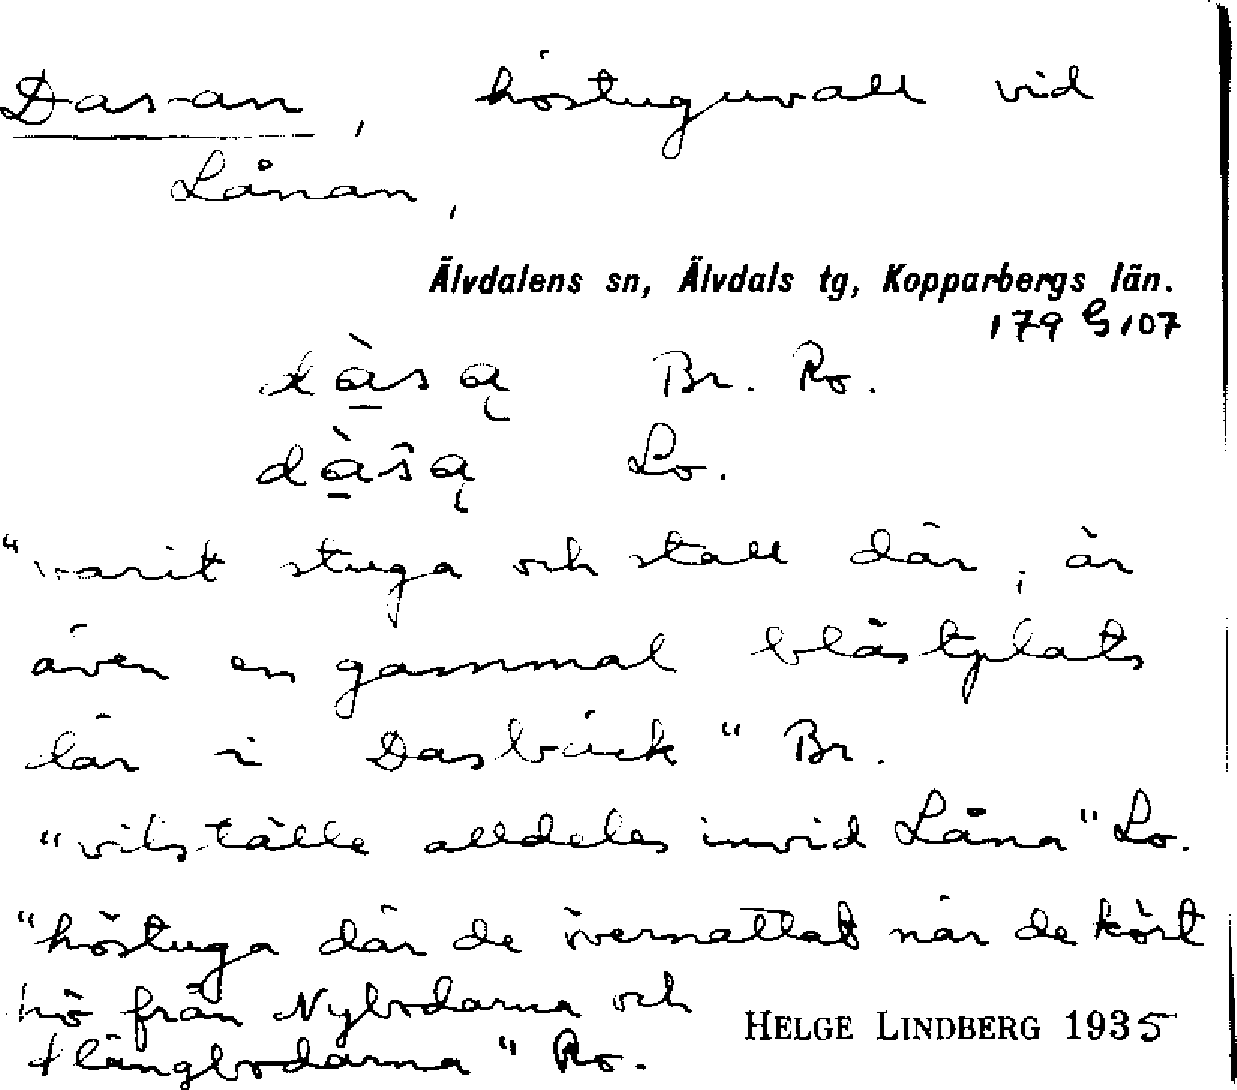 Das-an, höstuguvall vid
Lånan,
Älvdalens sn, Älvdals tg, Kopparbergs län.
179 G 107
dàsą Br. Ro.
dàŝą Lo.
"varit stuga och stall där, är
även en gammal blästplats
där i Dasbäck" Br.
"vilställe alldeles invid Låna" Lo.
"höstuga där de övernattat när de kört
hö från Nybodarna och
långbodarna" Ro.
HELGE LINDBERG 1935